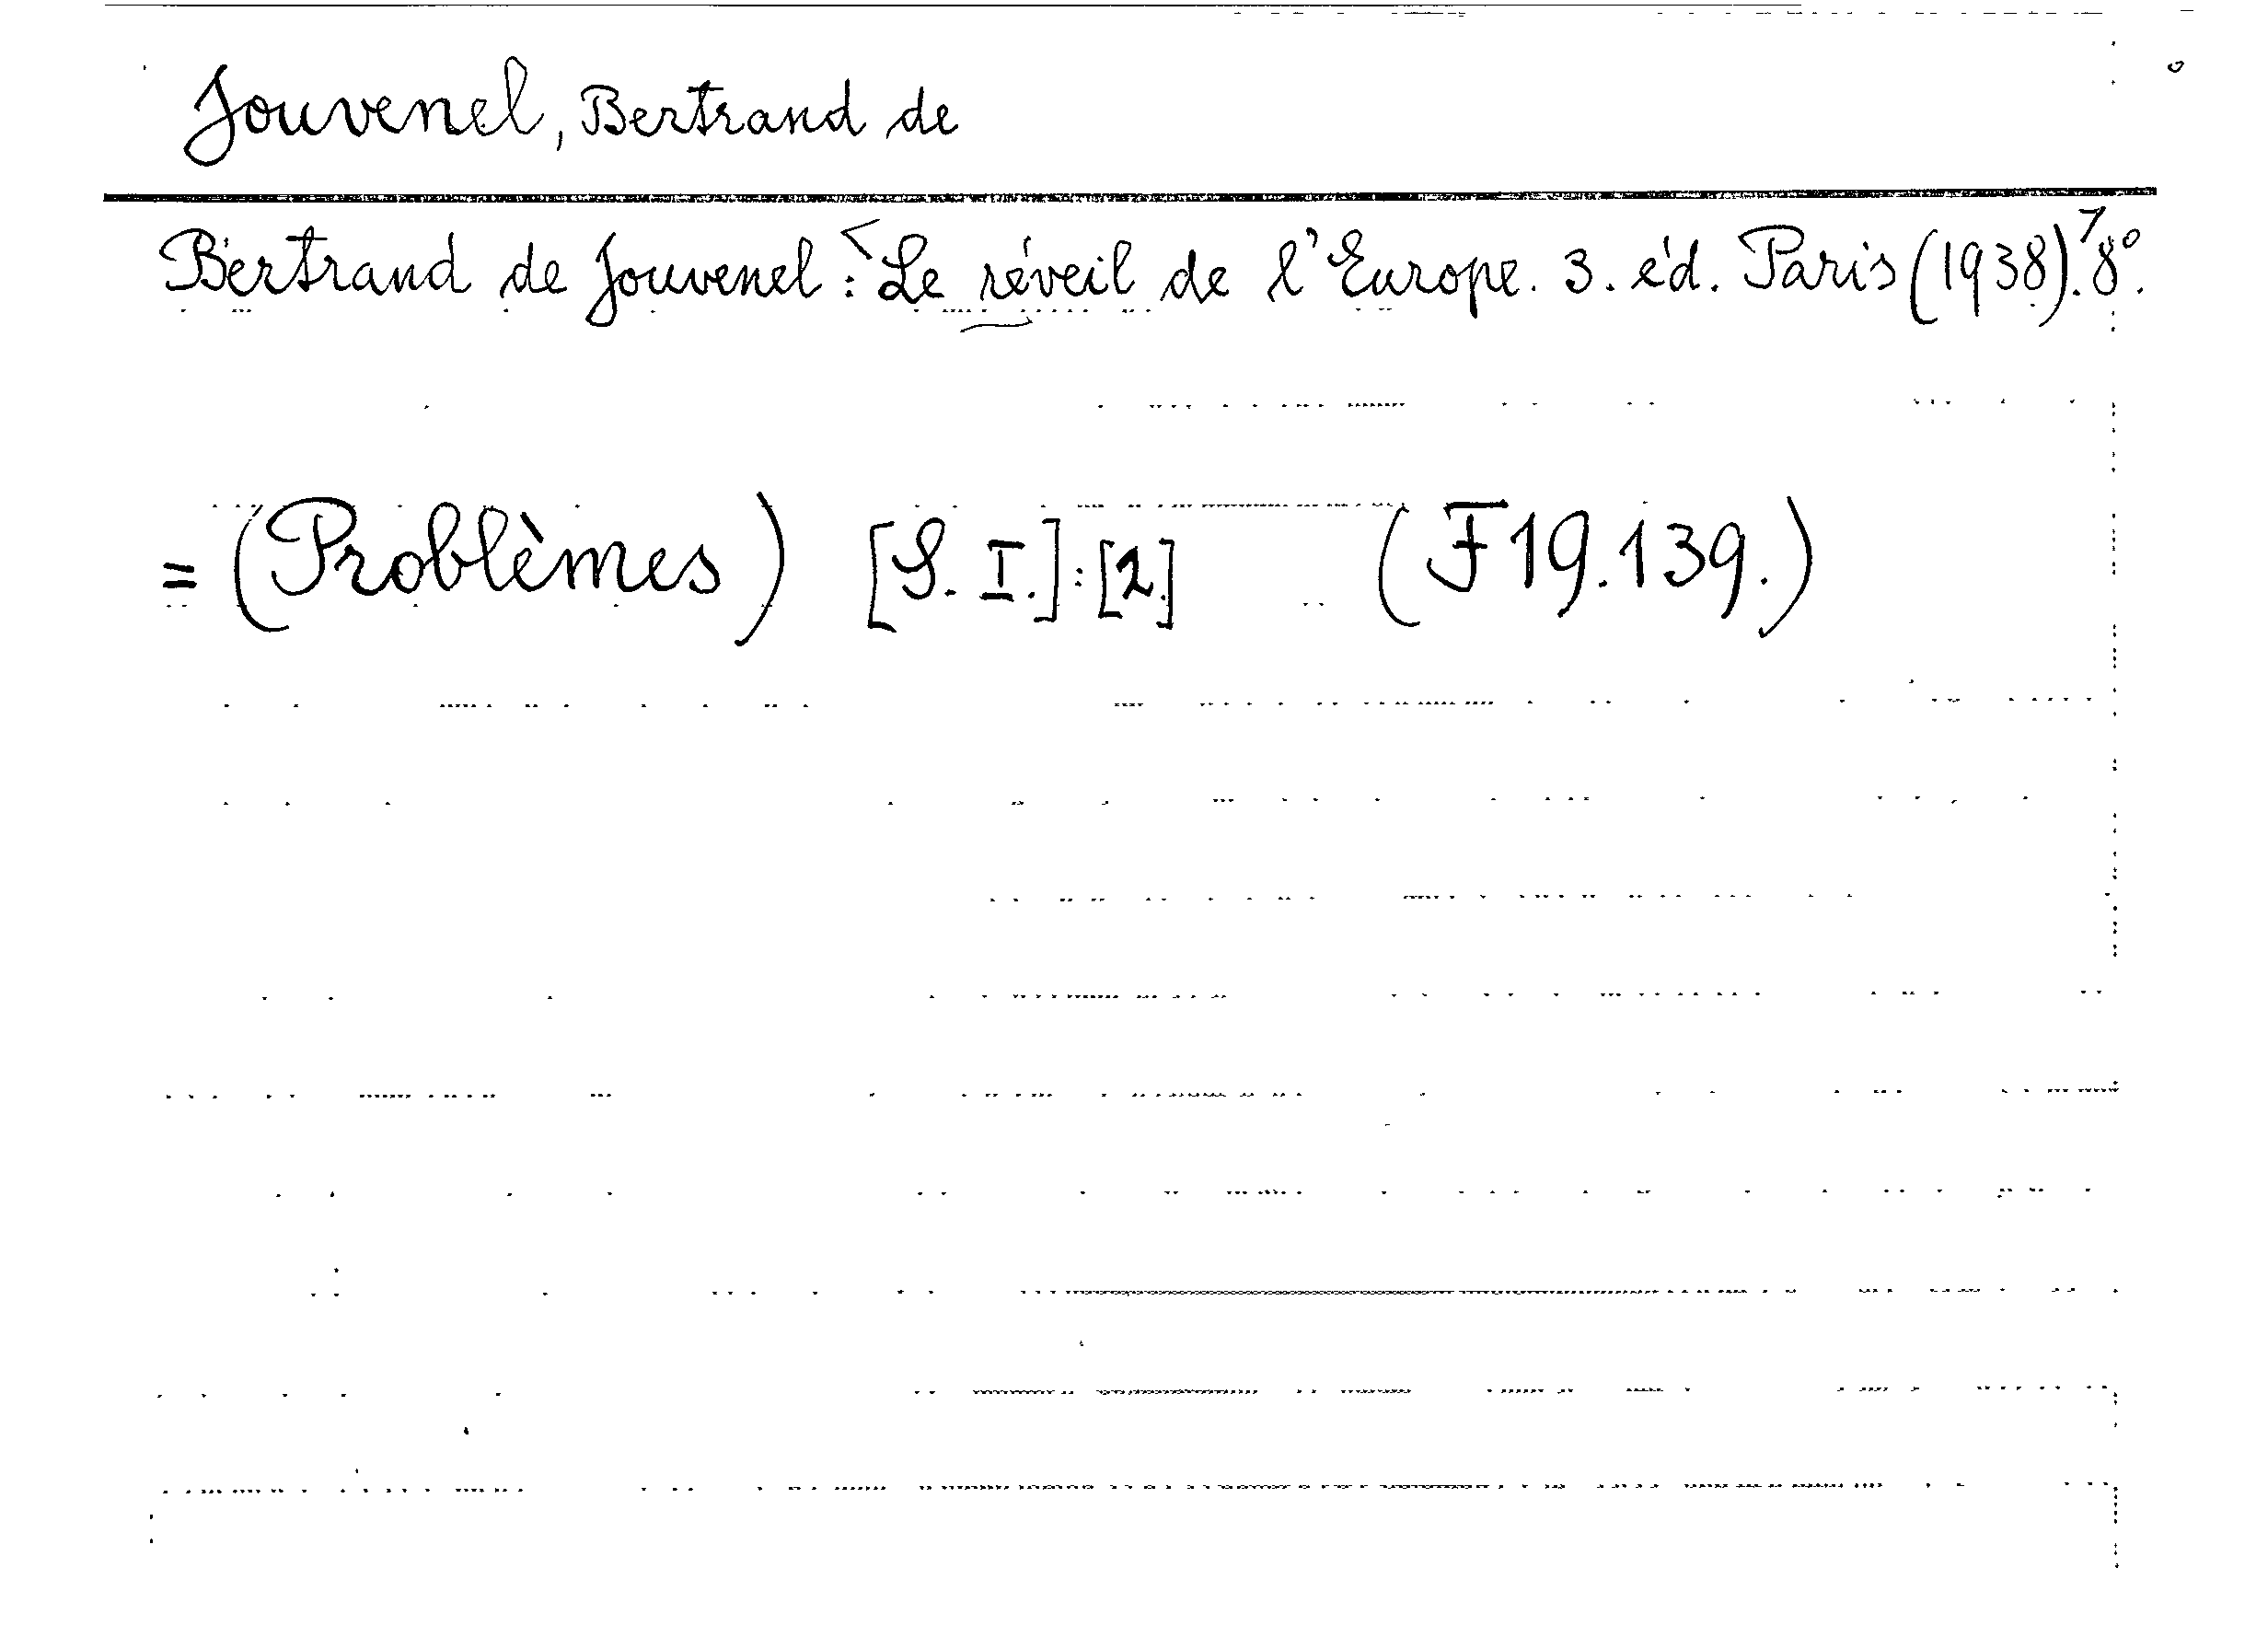 Jouvenel, Bertrand de
Bertrand de Jouvenel: Le réveil de l'Europe. 3. éd. Paris (1938). 8°.
= (Problèmes) [S. I.]: [2.] (F19.139.)